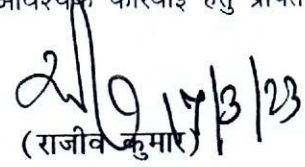 आवश्यक कार्रवाई हेतु प्रेषित
17/3/23
(राजीव कुमार)